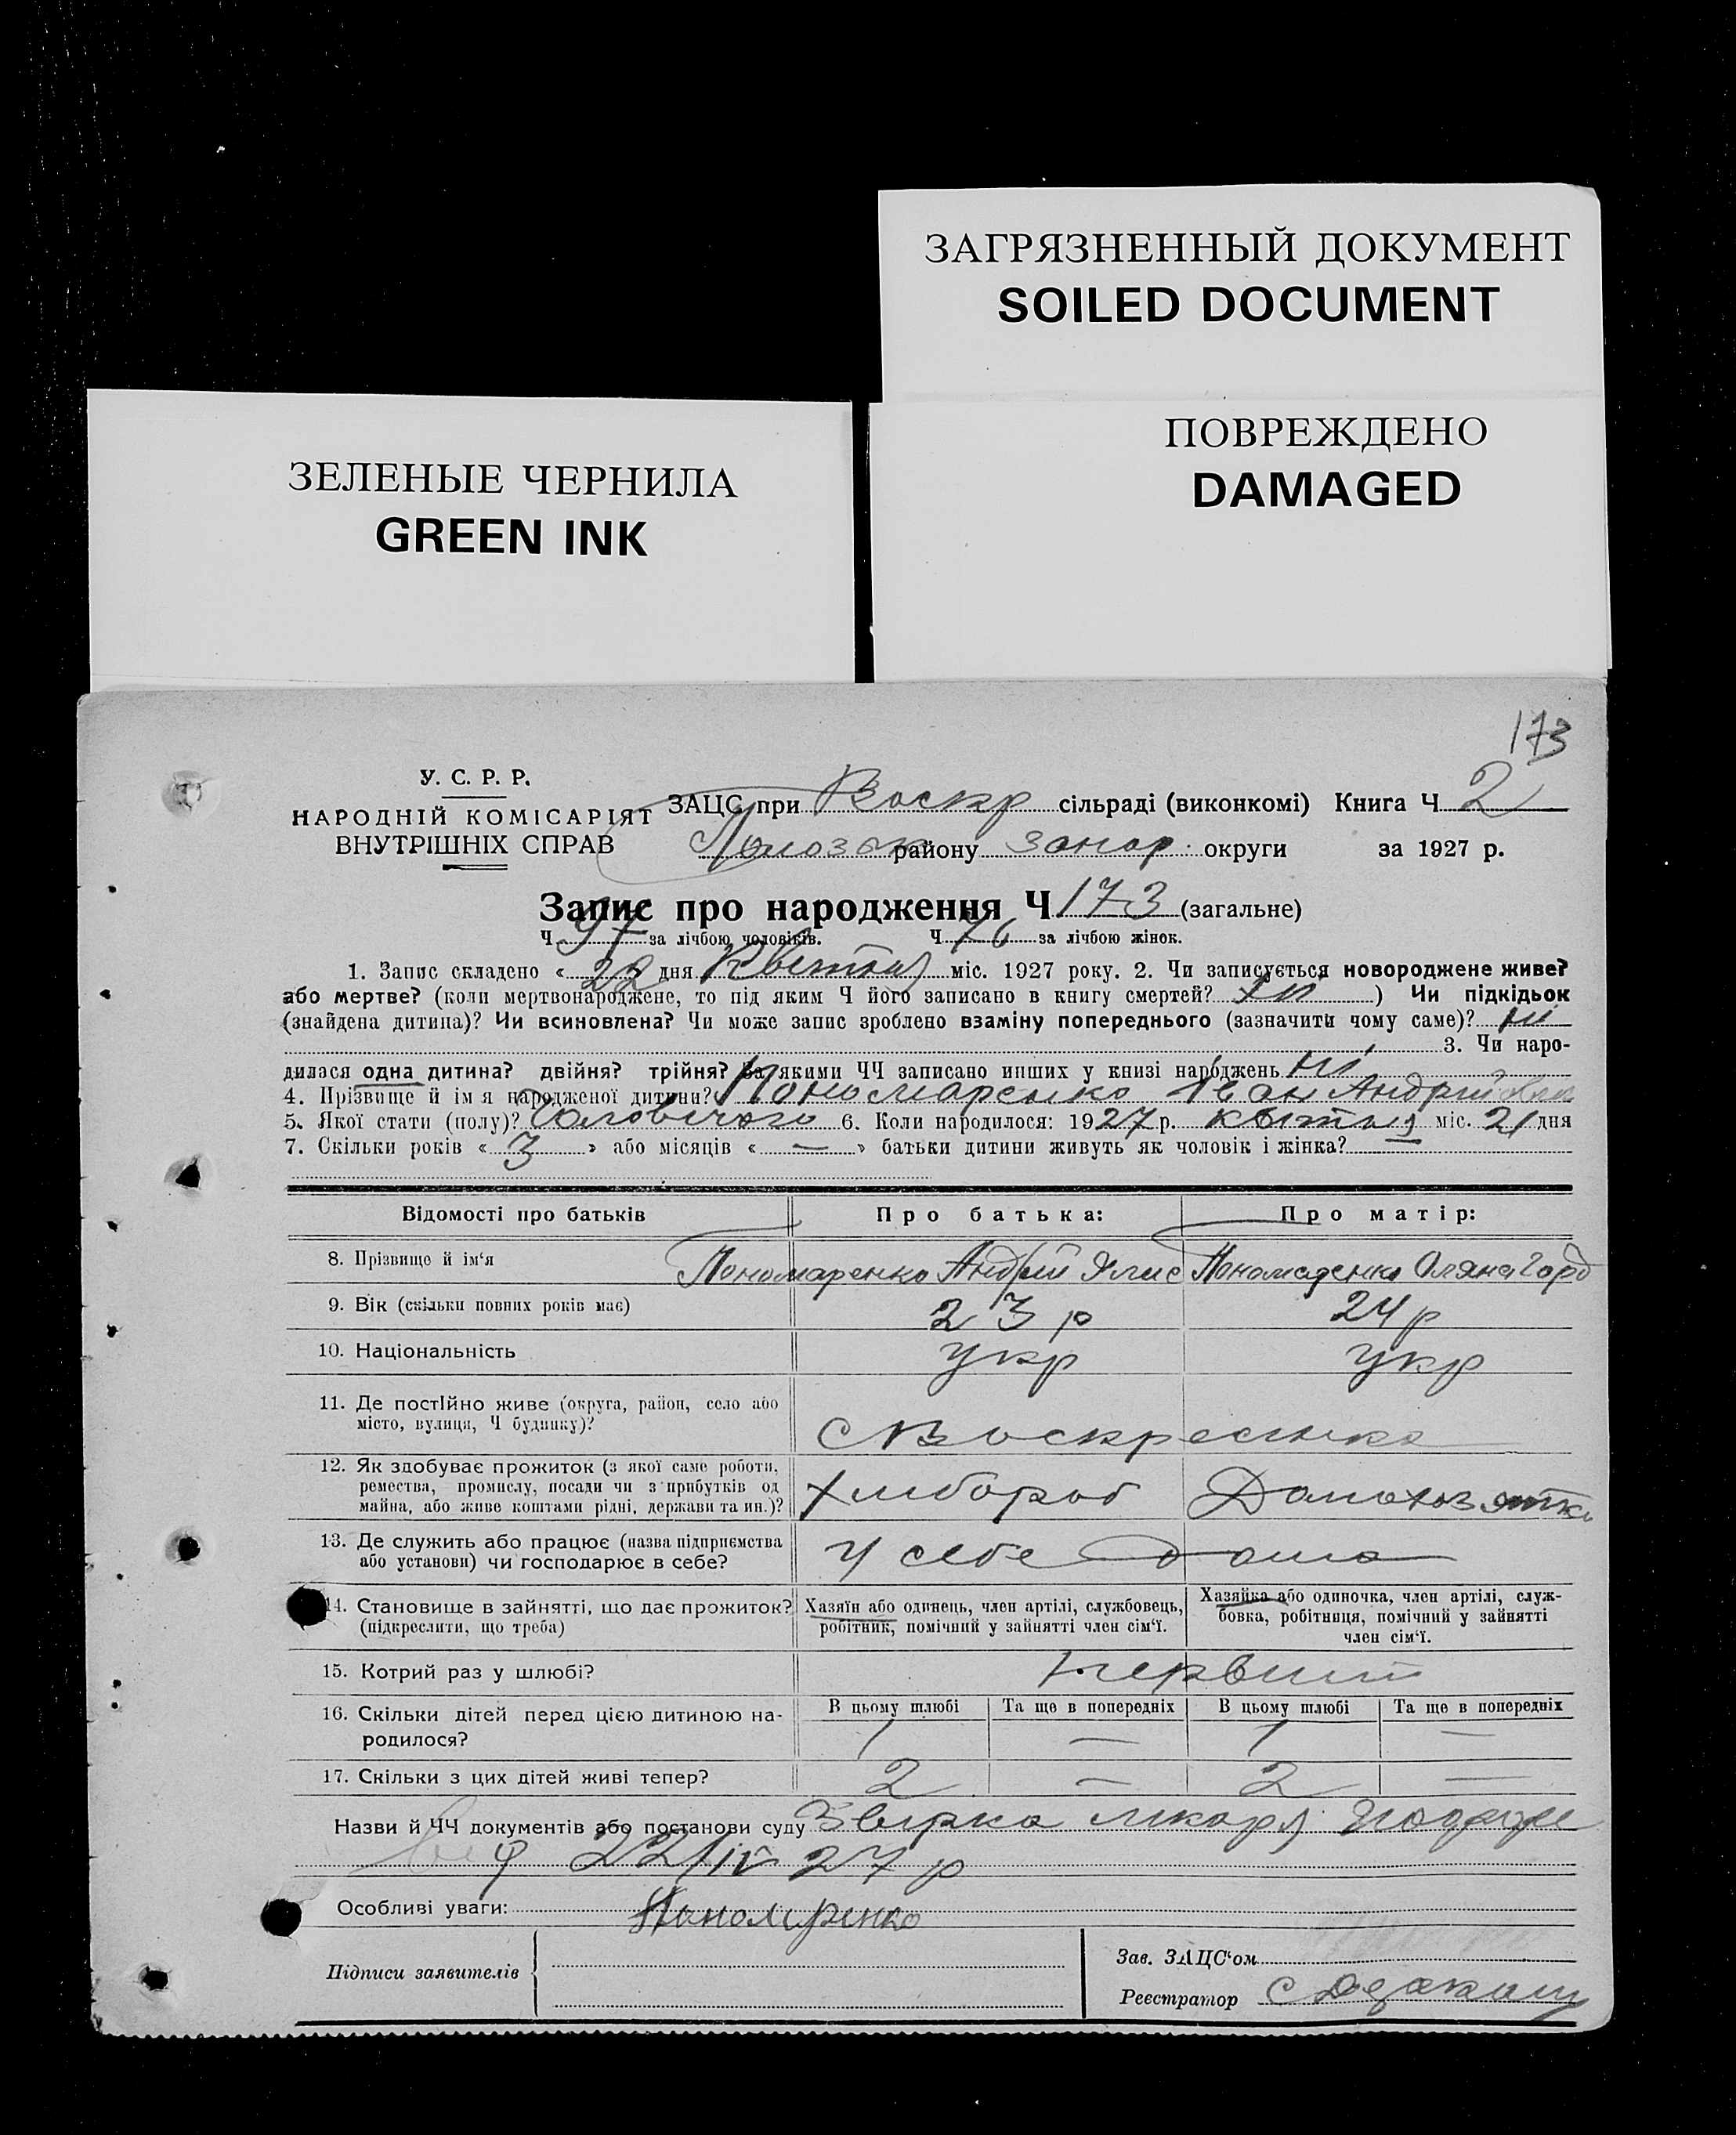 ЗАГРЯЗНЕННЫЙ ДОКУМЕНТ
SOILED DOCUMENT
ПОВРЕЖДЕНО
DAMAGED
ЗЕЛЕНЫЕ ЧЕРНИЛА
GREEN INK
173
У. С. Р. Р.
НАРОДНІЙ КОМІСАРІЯТ
ВНУТРІШНІХ СПРАВ
ЗАЦС при Воскр сільраді (виконкомі) Книга Ч 2
району запор. округи за 1927 р.
Запис про народження Ч 173 (загальне)
Ч 97 за лічбою чоловіків. Ч 76 за лічбою жінок.
1. Запис складено « 22 дня Квітня міс. 1927 року. 2. Чи записується новороджене живе?
або мертве? (коли мертвонароджене, то під яким Ч його записано в книгу смертей? ) Чи підкідьок
(знайдена дитина)? Чи всиновлена? Чи може запис зроблено взаміну попереднього (зазначити чому саме)? ні
3. Чи наро-
дилася одна дитина? двійня? трійня? За якими ЧЧ записано инших у книзі народжень ні
4. Прізвище й ім я народженої дитини? Пономаренко Іван Андрійович
5. Якої стати (полу)? Чоловічого 6. Коли народилося: 1927 р. квітня міс. 21 дня
7. Скільки років « 3 » або місяців « — » батьки дитини живуть як чоловік і жінка? —
Відомості про батьків Про батька: Про матір:
8. Прізвище й ім'я Пономаренко Андрій Пономаренко Оляна Горд
9. Вік (скільки повних років має) 23 р 24 р
10. Національність укр укр
11. Де постійно живе (округа, район, село або
місто, вулиця, Ч будинку)? с Воскресенка
12. Як здобуває прожиток (з якої саме роботи,
ремества, промислу, посади чи з прибутків од
майна, або живе коштами рідні, держави та ин.)? Хлібороб
13. Де служить або працює (назва підприємства
або установи) чи господарює в себе? У себе дома
14. Становище в зайнятті, що дає прожиток?
(підкреслити, що треба)
Хазяїн або одинець, член артілі, службовець,
робітник, помічний у зайнятті член сім'ї.
Хазяйка або одиночка, член артілі, служ-
бовка, робітниця, помічний у зайнятті
член сім'ї.
15. Котрий раз у шлюбі? первий
16. Скільки дітей перед цією дитиною на-
родилося?
В цьому шлюбі Та ще в попередніх В цьому шлюбі Та ще в попередніх
1 — 1 —
17. Скільки з цих дітей живі тепер? 2 — 2 —
Назви й ЧЧ документів або постанови суду
22/IV 27 р
Особливі уваги: Пономаренко
Підписи заявителів
Зав. ЗАЦС'ом
Реєстратор